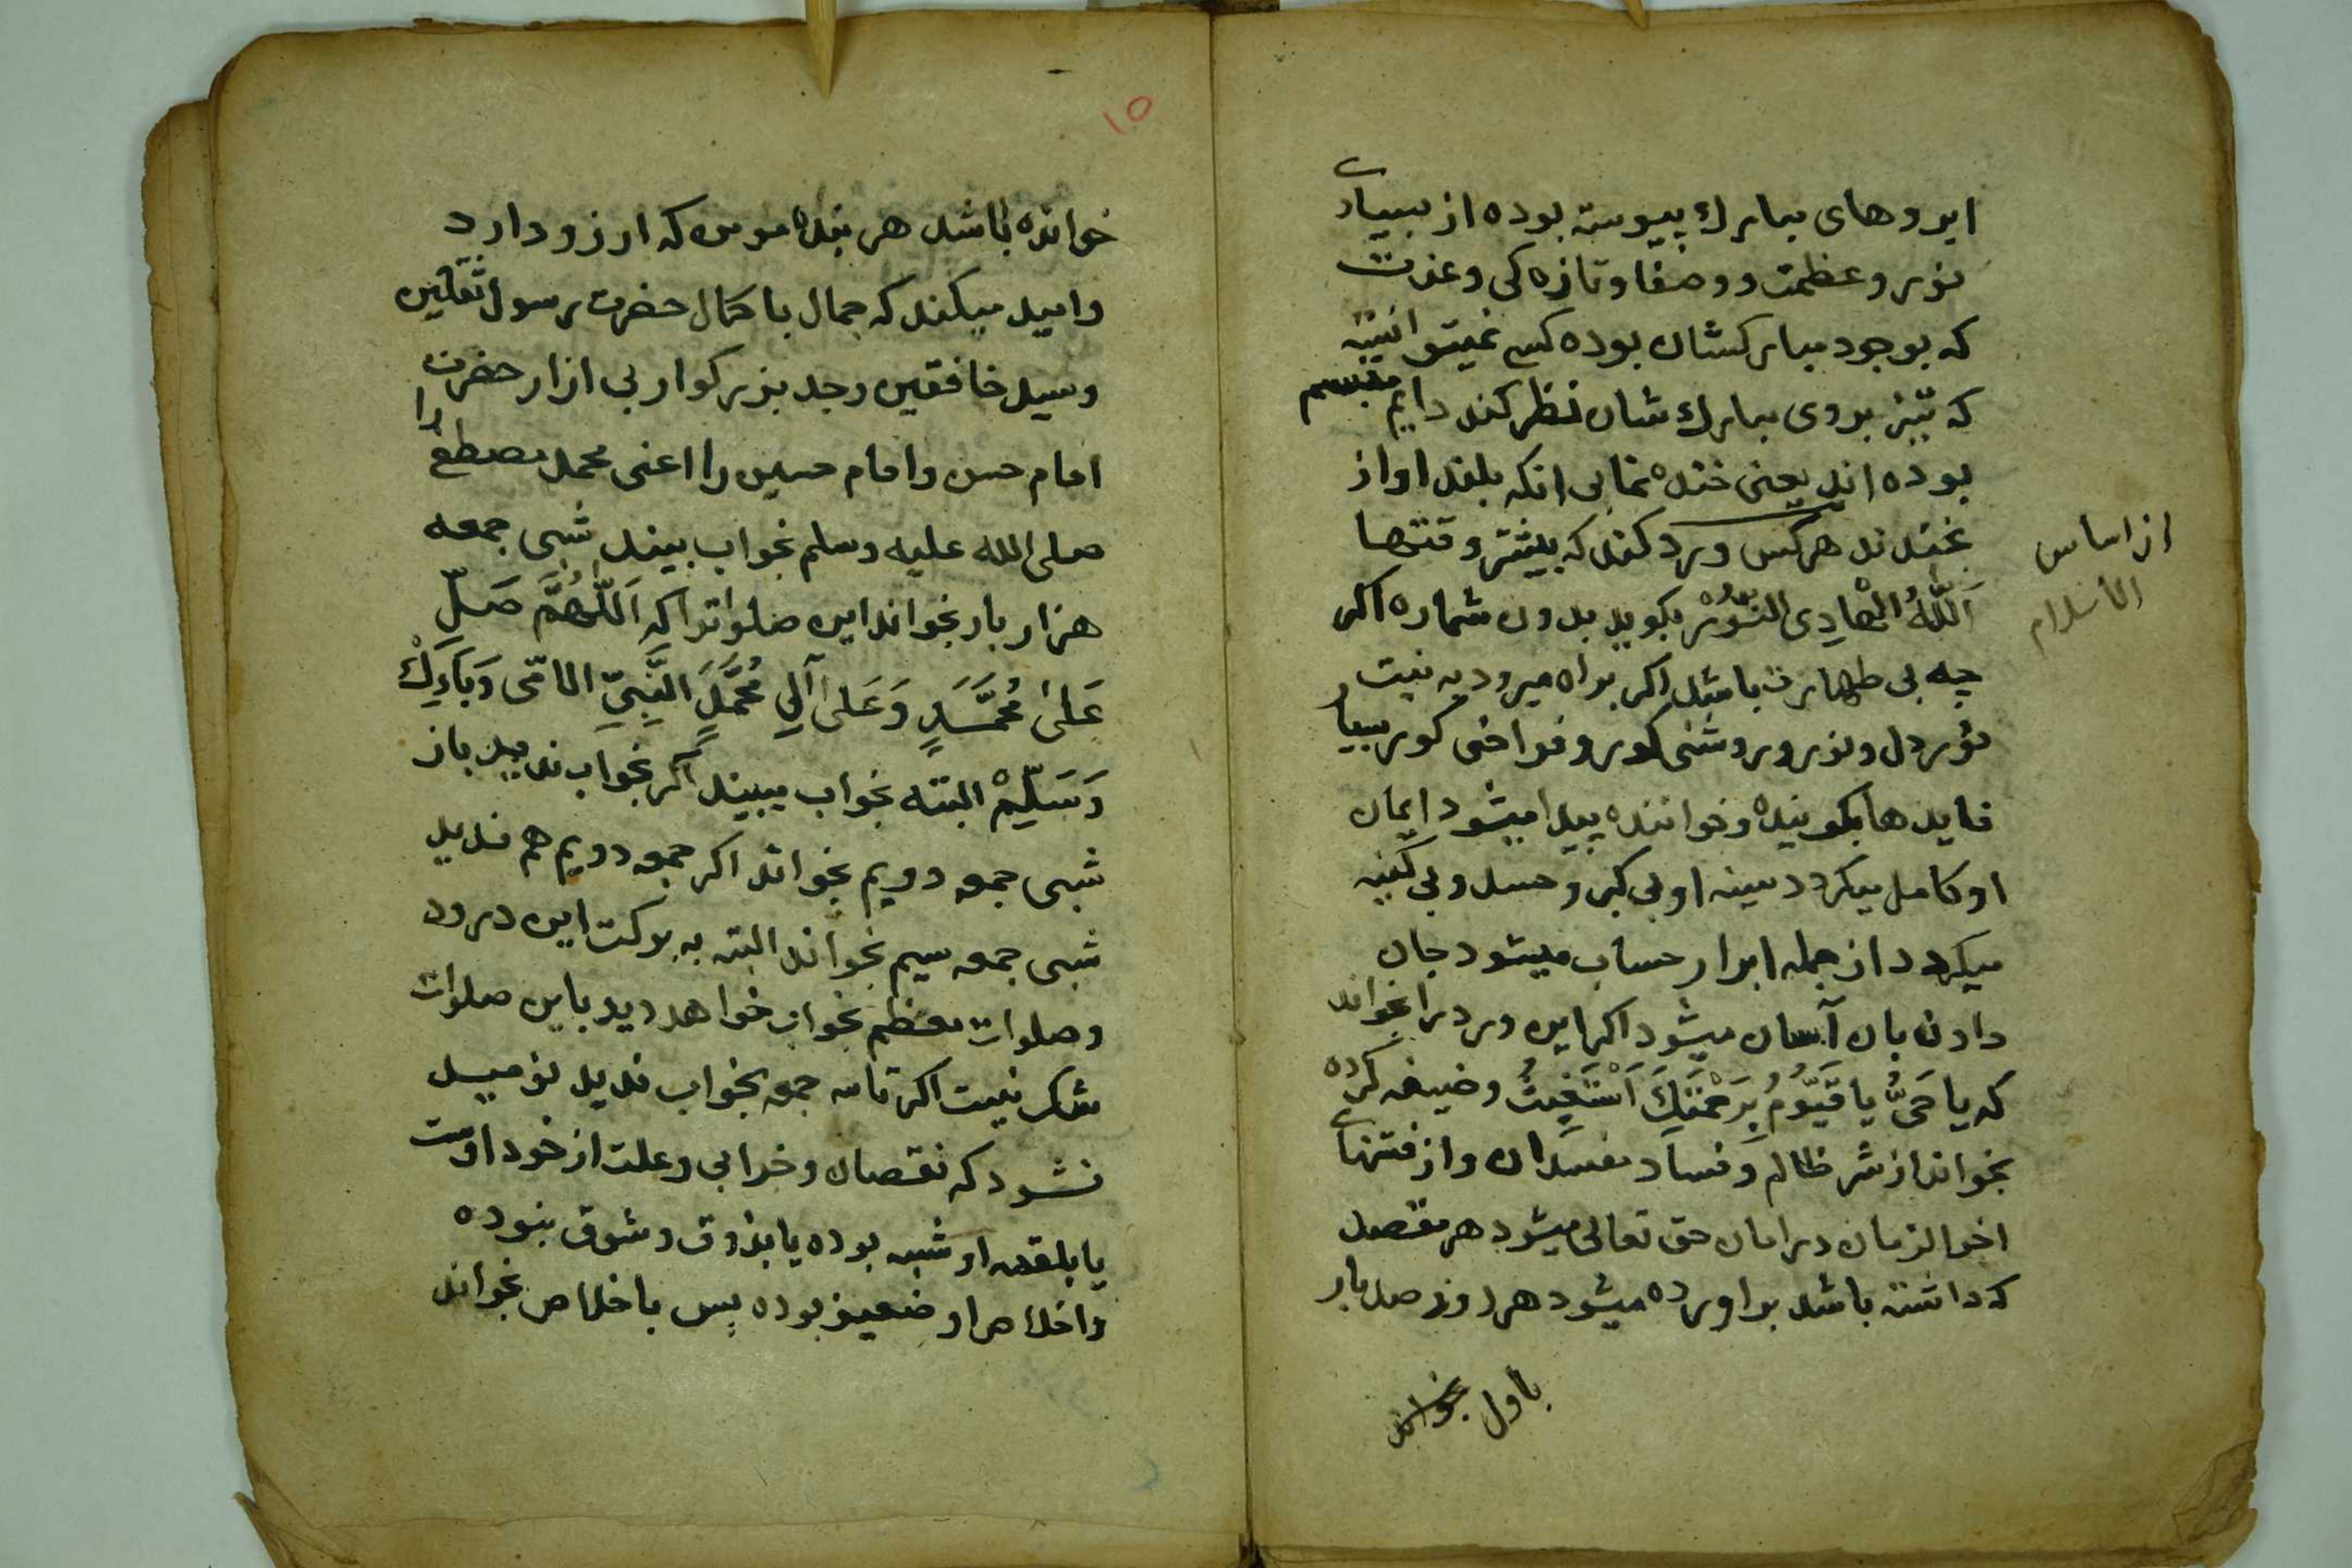 ابروهای مبارك پیوسته بوده از بسیاری
نور و عظمت و وصفا و تازه کی و عزت
که بوجود مبارکشان بوده کسی نمیتوانیته
که تیز بروی مبارك شان نظر کند دایم متبسم
بوده اند یعنی خنده نما بی انکه بلند اواز
بخندند هرکس ورد کند که بیشتر وقتها
اَللّٰهُ الْهَادِی النُّوْرُ بکوید بدون شماره اکر
چه بی طهارت باشد اکر براه میرود به نیت
نور دل و نور و روشنی کور و فراخی کور بسیار
فایدها بکوینده و خواننده پیدا میشود ایمان
او کامل میکردد سینه او بی کبر و حسد و بی کینه
میکردد از جمله ابرار حساب میشود جان
دادن بان آسان میشود اکر این ورد را بخواند
که یَا حَیُّ یَا قَیُّوْمُ بِرَحْمَتِكَ اَسْتَغِیْثُ وضیفه کرده
بخواند از شر ظالم و فساد مفسدان و از فتنهای
اخرالزمان در امان حق تعالی میشود هر مقصد
که داشته باشد براورده میشود هر روز صد بار
باول بخواند
از اساس
الاسلام
۱۵
خوانده باشد هر بنده مومن که ارزو دارد
و امید میکند که جمال با کمال حضرت رسول ثقلین
و سید خافقین و جد بزرکوار بی ازار حضرت
امام حسن و امام حسین را اعنی محمد مصطفی را
صلی الله علیه وسلم بخواب بیند شبی جمعه
هزار بار بخواند این صلواترا که اَللّٰهُمَّ صَلِّ
عَلٰی مُحَمَّدٍ وَعَلٰی آلِ مُحَمَّدٍ النَّبِیِّ الامّی وَبَارِكْ
وَسَلِّمْ البته بخواب میبیند اکر بخواب ندید باز
شبی جمعه دویم بخواند اکر جمعه دویم هم ندید
شبی جمعه سیم بخواند البته به برکت این درود
و صلوات معظم بخواب خواهد دید باین صلوات
شک نیست اکر تا سه جمعه بخواب ندید نومید
نشود که نقصان و خرابی و علت از خود اوست
یا بلقمه او شبه بوده یا بذوق و شوق نبوده
و اخلاص او ضعیف بوده پس با اخلاص بخواند